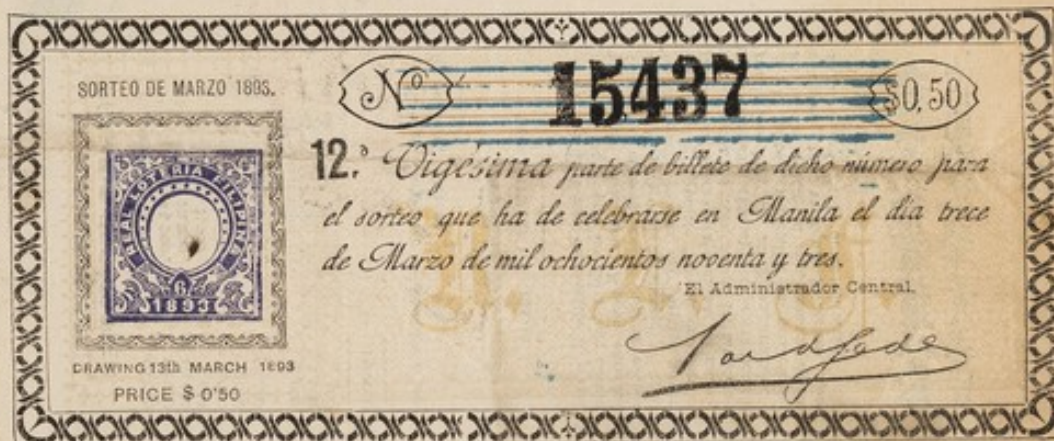 SORTEO DE MARZO 1893.
REAL LOTERIA FILIPINA
6
1893
DRAWING 13th MARCH 1893
PRICE $ 0'50
Nº 15437 $0,50
12.ª Vigésima parte de billete de dicho número para
el sorteo que ha de celebrarse en Manila el día trece
de Marzo de mil ochocientos noventa y tres.
El Administrador Central,